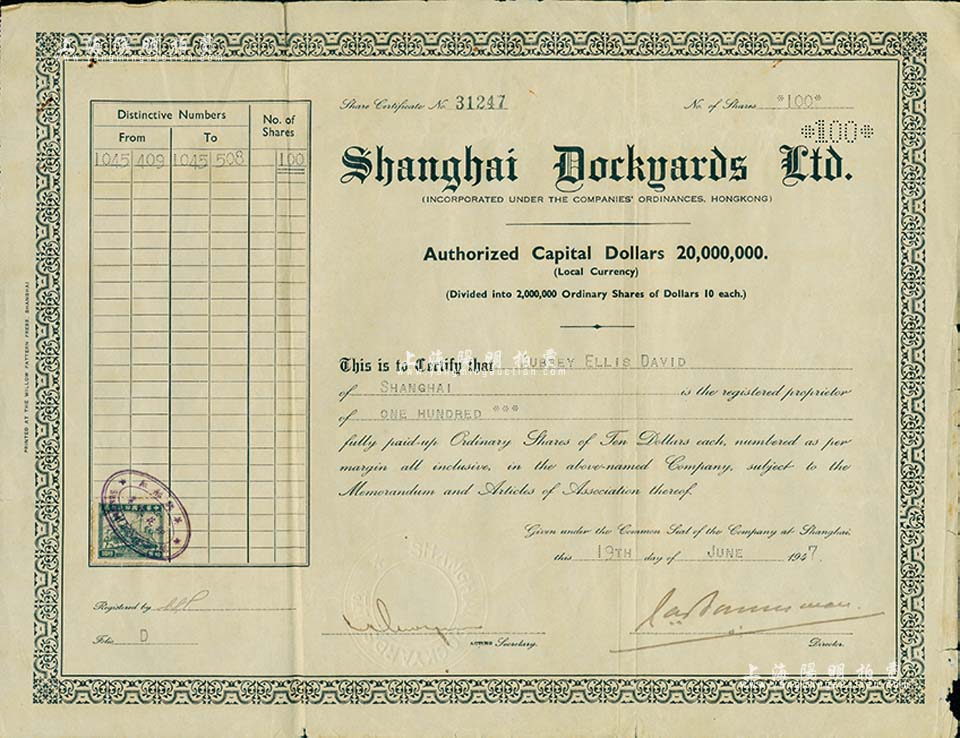 上海陽明拍賣
www.yangmingauction.com
Share Certificate No 31247
No. of Shares *100*
*100*
Distinctive Numbers
No. of Shares
From To
1045 409 1045 508 100
Shanghai Dockyards Ltd.
(INCORPORATED UNDER THE COMPANIES' ORDINANCES, HONGKONG)
Authorized Capital Dollars 20,000,000.
(Local Currency)
(Divided into 2,000,000 Ordinary Shares of Dollars 10 each.)
This is to Certify that AUBREY ELLIS DAVID
上海陽明拍賣
www.yangmingauction.com
of SHANGHAI is the registered proprietor
of ONE HUNDRED ***
fully paid-up Ordinary Shares of Ten Dollars each, numbered as per
margin all inclusive, in the above-named Company, subject to the
Memorandum and Articles of Association thereof.
Given under the Common Seal of the Company at Shanghai,
this 19TH day of JUNE 1947.
Registered by
Folio D
SHANGHAI DOCKYARDS
ACTING Secretary.
Director.
PRINTED AT THE WILLOW PATTERN PRESS, SHANGHAI
上海陽明拍賣